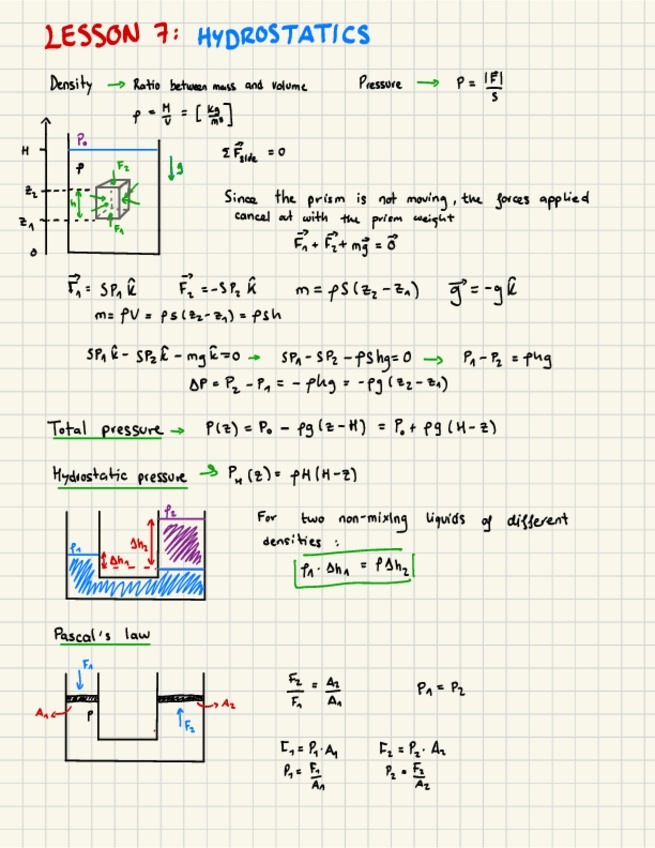 LESSON 7: HYDROSTATICS
Density → Ratio between mass and volume Pressure → P = |F|/S
ρ = M/V = [kg/m³]
P₀
H
ρ
F₂
g
Σ F⃗side = 0
z₂
h
z₁
F₁
0
Since the prism is not moving, the forces applied
cancel out with the prism weight
F⃗₁ + F⃗₂ + mg⃗ = 0⃗
F⃗₁ = SP₁ k̂ F⃗₂ = -SP₂ k̂ m = ρS(z₂-z₁) g⃗ = -g k̂
m = ρV = ρS(z₂-z₁) = ρSh
SP₁ k̂ - SP₂ k̂ - mg k̂ = 0 → SP₁ - SP₂ - ρShg = 0 → P₁ - P₂ = ρhg
ΔP = P₂ - P₁ = -ρhg = -ρg(z₂-z₁)
Total pressure → P(z) = P₀ - ρg(z-H) = P₀ + ρg(H-z)
Hydrostatic pressure → P_H(z) = ρH(H-z)
ρ₂
ρ₁
Δh₂
Δh₁
For two non-mixing liquids of different
densities :
ρ₁ · Δh₁ = ρΔh₂
Pascal's law
F₁
A₁
ρ
A₂
F₂
F₂/F₁ = A₂/A₁ P₁ = P₂
F₁ = P₁ · A₁ F₂ = P₂ · A₂
P₁ = F₁/A₁ P₂ = F₂/A₂